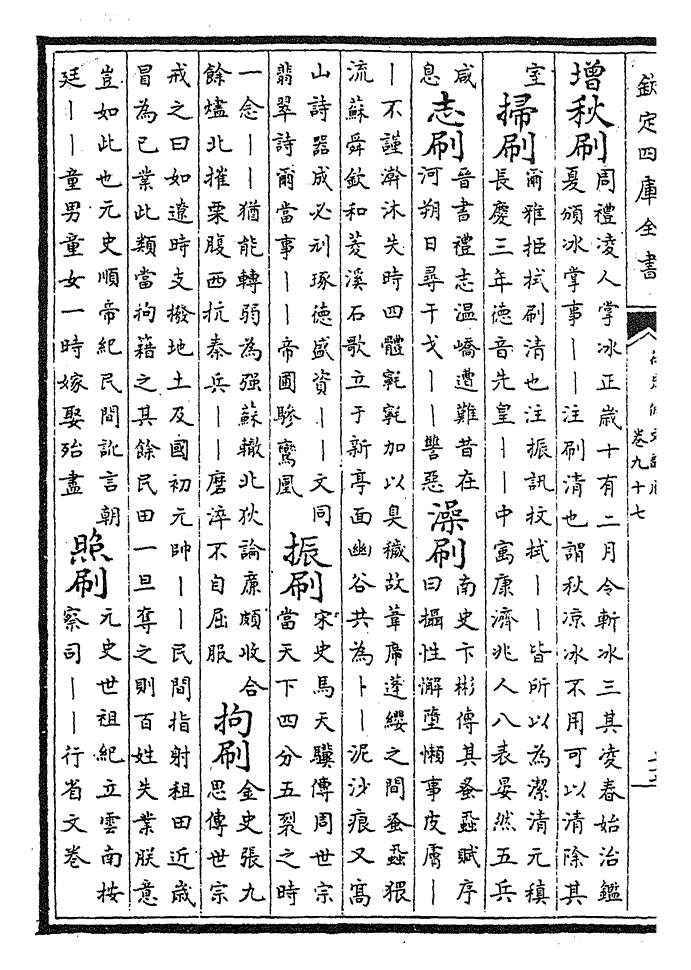 欽定四庫全書
卷九十七
增秋刷
周禮凌人掌冰正歲十有二月令斬冰三其凌春始治鑑
夏頒冰掌事丨丨注刷清也謂秋凉冰不用可以清除其
室
掃刷
爾雅拒拭刷清也注振訊抆拭丨丨皆所以為潔清元稹
長慶三年德音先皇丨丨中寓康濟兆人八表晏然五兵
咸
息
志刷
晉書禮志温嶠遭難昔在
河朔日尋干戈丨丨讐惡
澡刷
南史卞彬傳其蚤蝨賦序
曰攝性懈墮懶事皮膚丨
丨不謹澣沐失時四體加以臭穢故葦席蓬纓之間蚤蝨猥
流蘇舜欽和菱溪石歌立于新亭面幽谷共為卜丨泥沙痕又高
山詩器成必利琢德盛資丨丨文同
翡翠詩爾當事丨丨帝圃驂鸞凰
振刷
宋史馬天驥傳周世宗
當天下四分五裂之時
一念丨丨猶能轉弱為强蘇轍北狄論廉頗收合
餘燼北摧栗腹西抗秦兵丨丨磨淬不自屈服
拘刷
金史張九
思傳世宗
戒之曰如遼時支撥地土及國初元帥丨丨民間指射租田近歲
冒為已業此類當拘籍之其餘民田一旦奪之則百姓失業朕意
豈如此也元史順帝紀民間訛言朝
廷丨丨童男童女一時嫁娶殆盡
照刷
元史世祖紀立雲南按
察司丨丨行省文卷